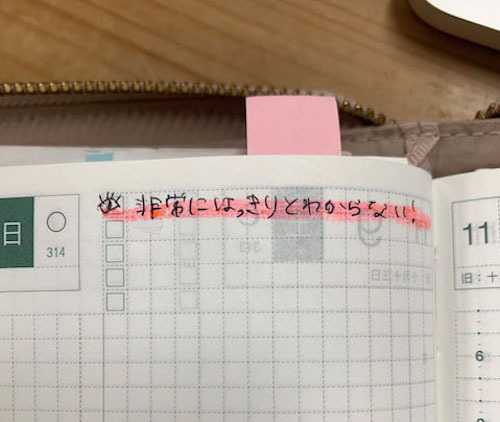 ※ 非常にはっきりとわからない!
日
314
11
旧:十
6
8